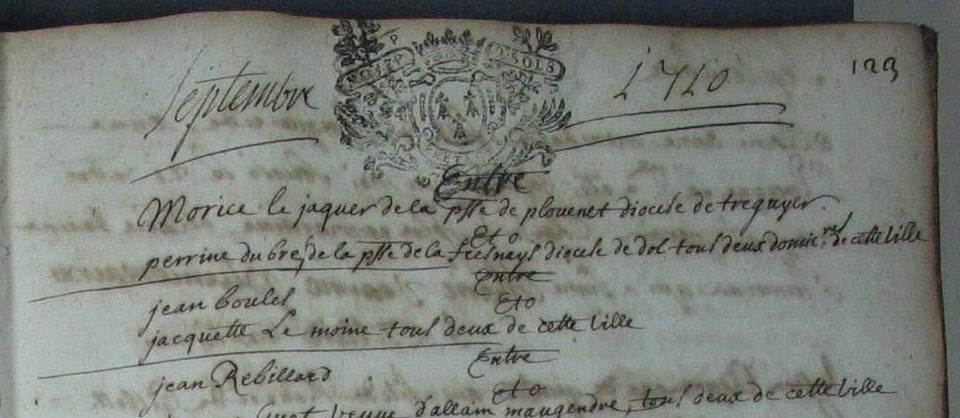 Septembre 1710 123
2 SOLS
Entre
Morice le jaquer de la psse de plouenet diocese de treguyer
Et
perrine dubré, de la psse de la fresnays diocese de dol tous deux domic.res de cette ville
Entre
jean boulet
Et
jacquette Le moine tous deux de cette ville
Entre
jean Rebillard
Et
veuve d'allain maugendre, tous deux de cette ville